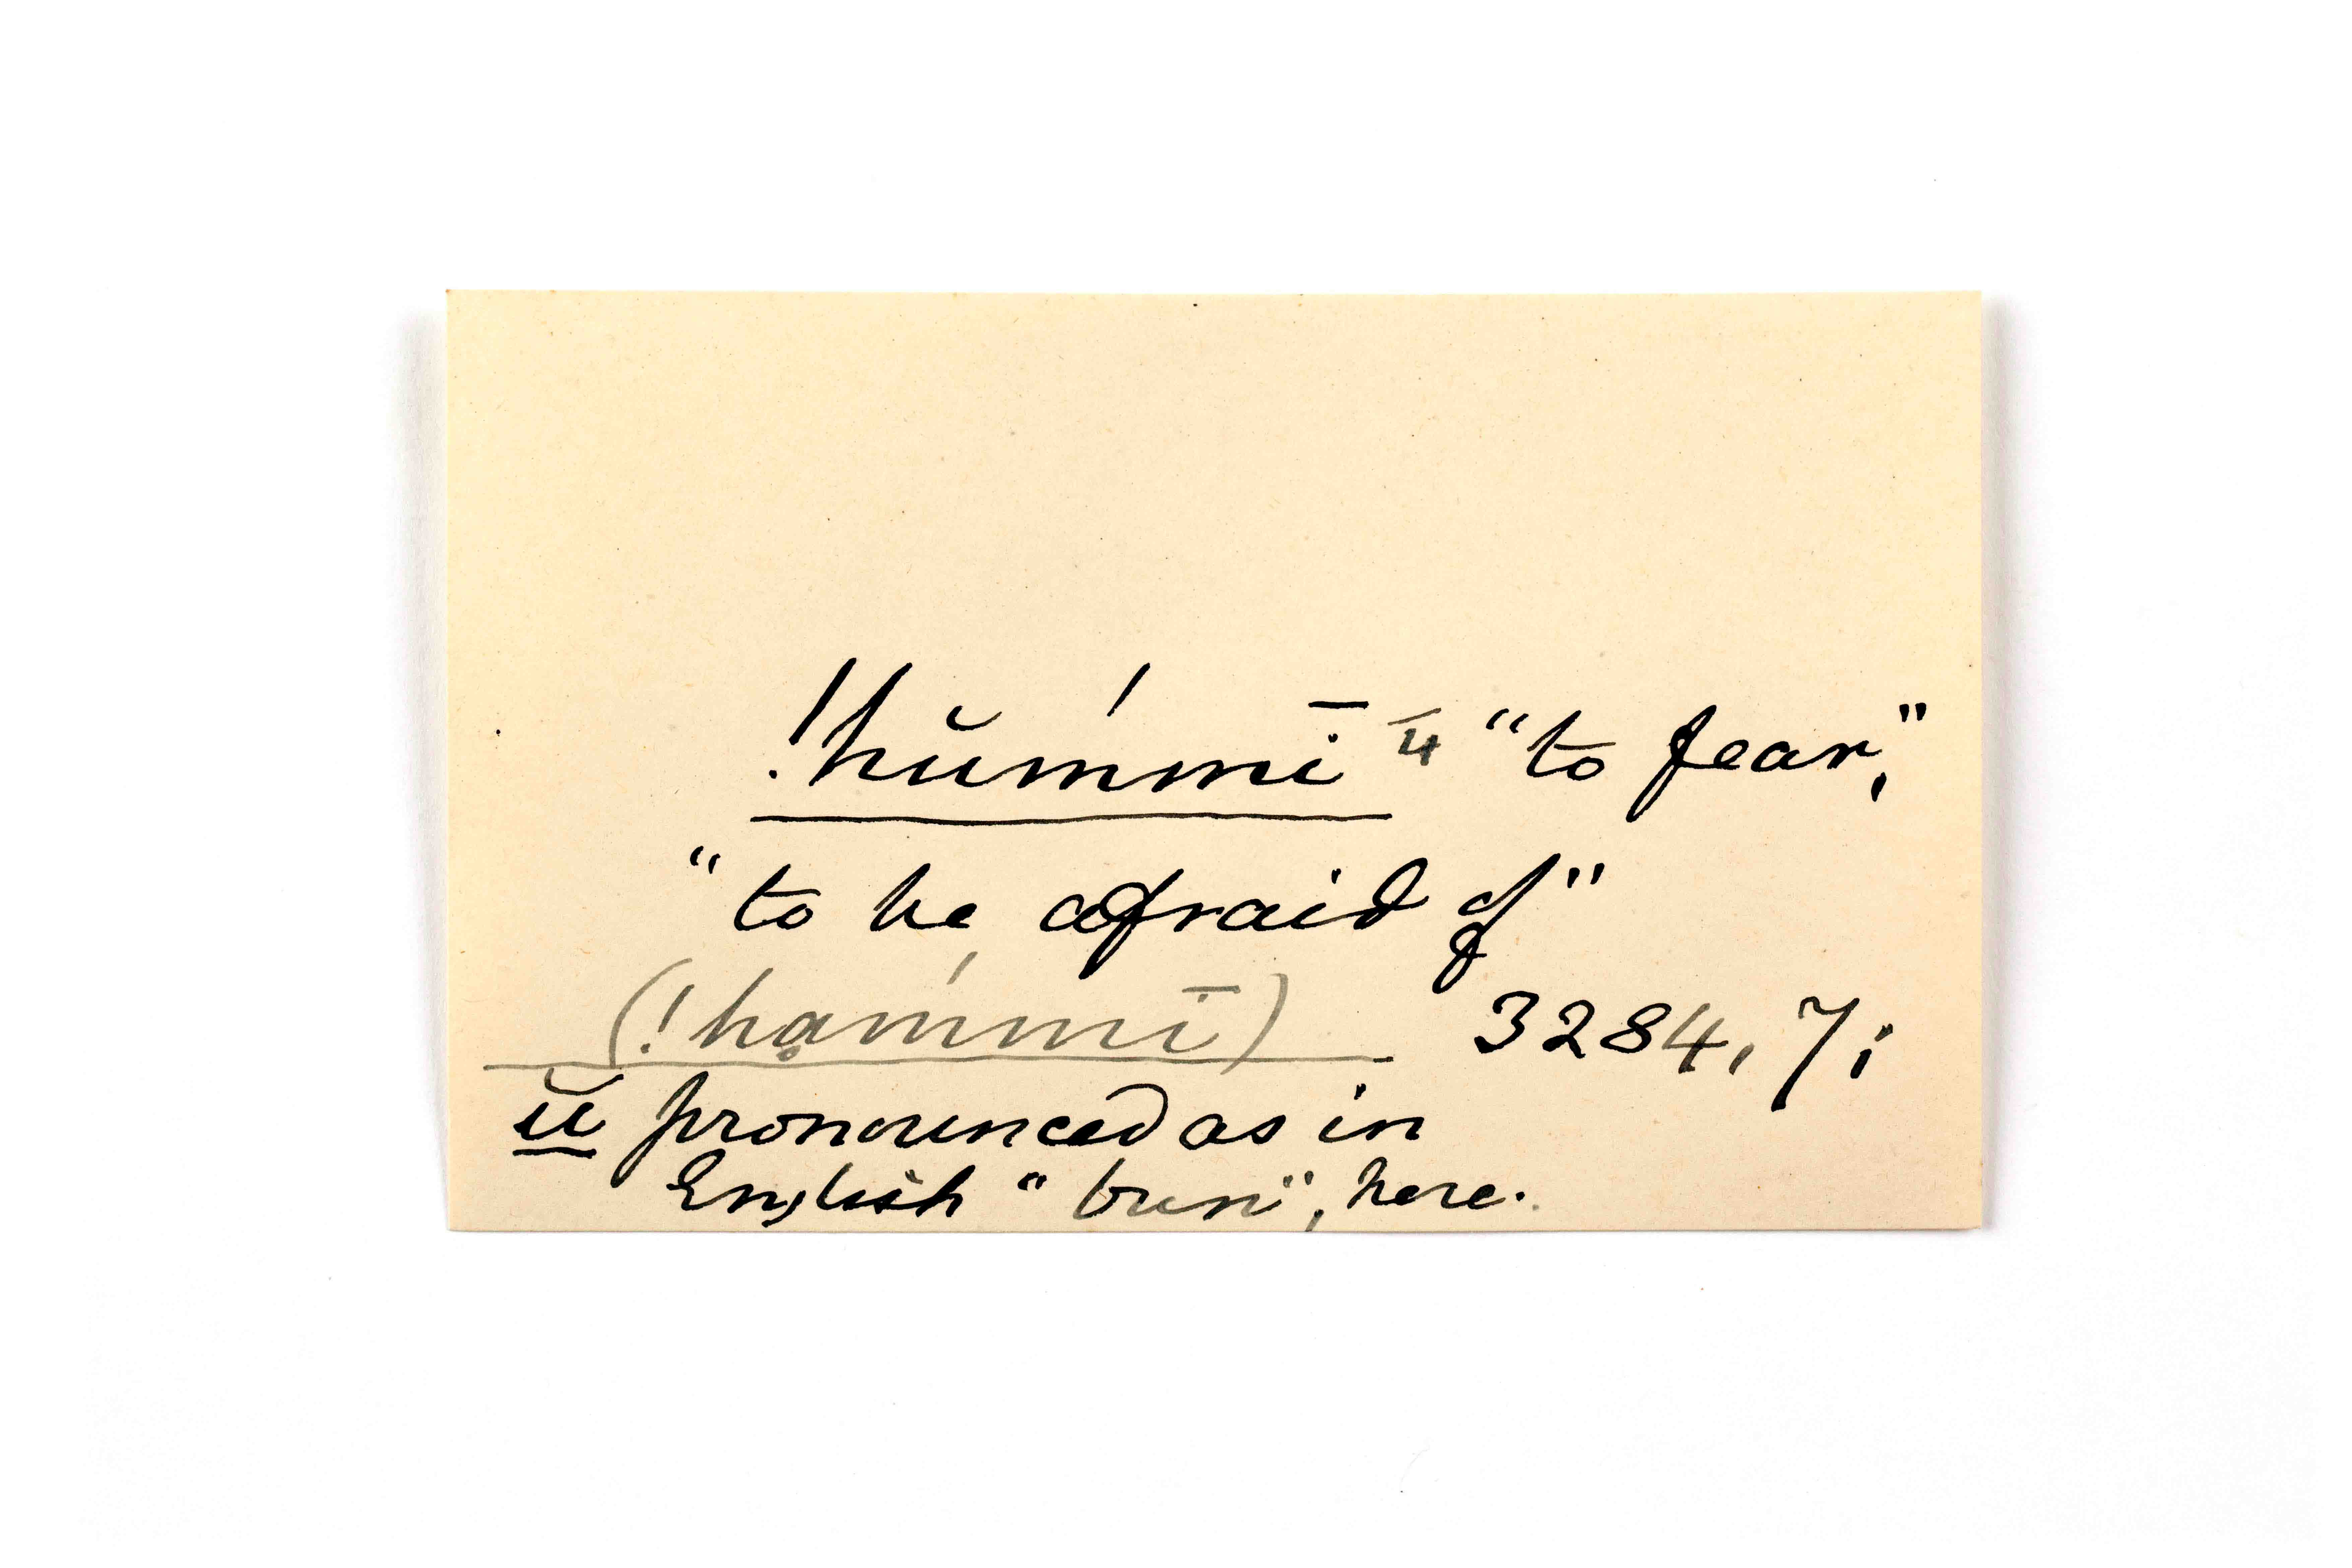 !hŭm´mī 4̄ "to fear,"
"to be afraid of"
(!hḁm´mī) 3284, 7;
ŭ pronounced as in
English "bun", here.